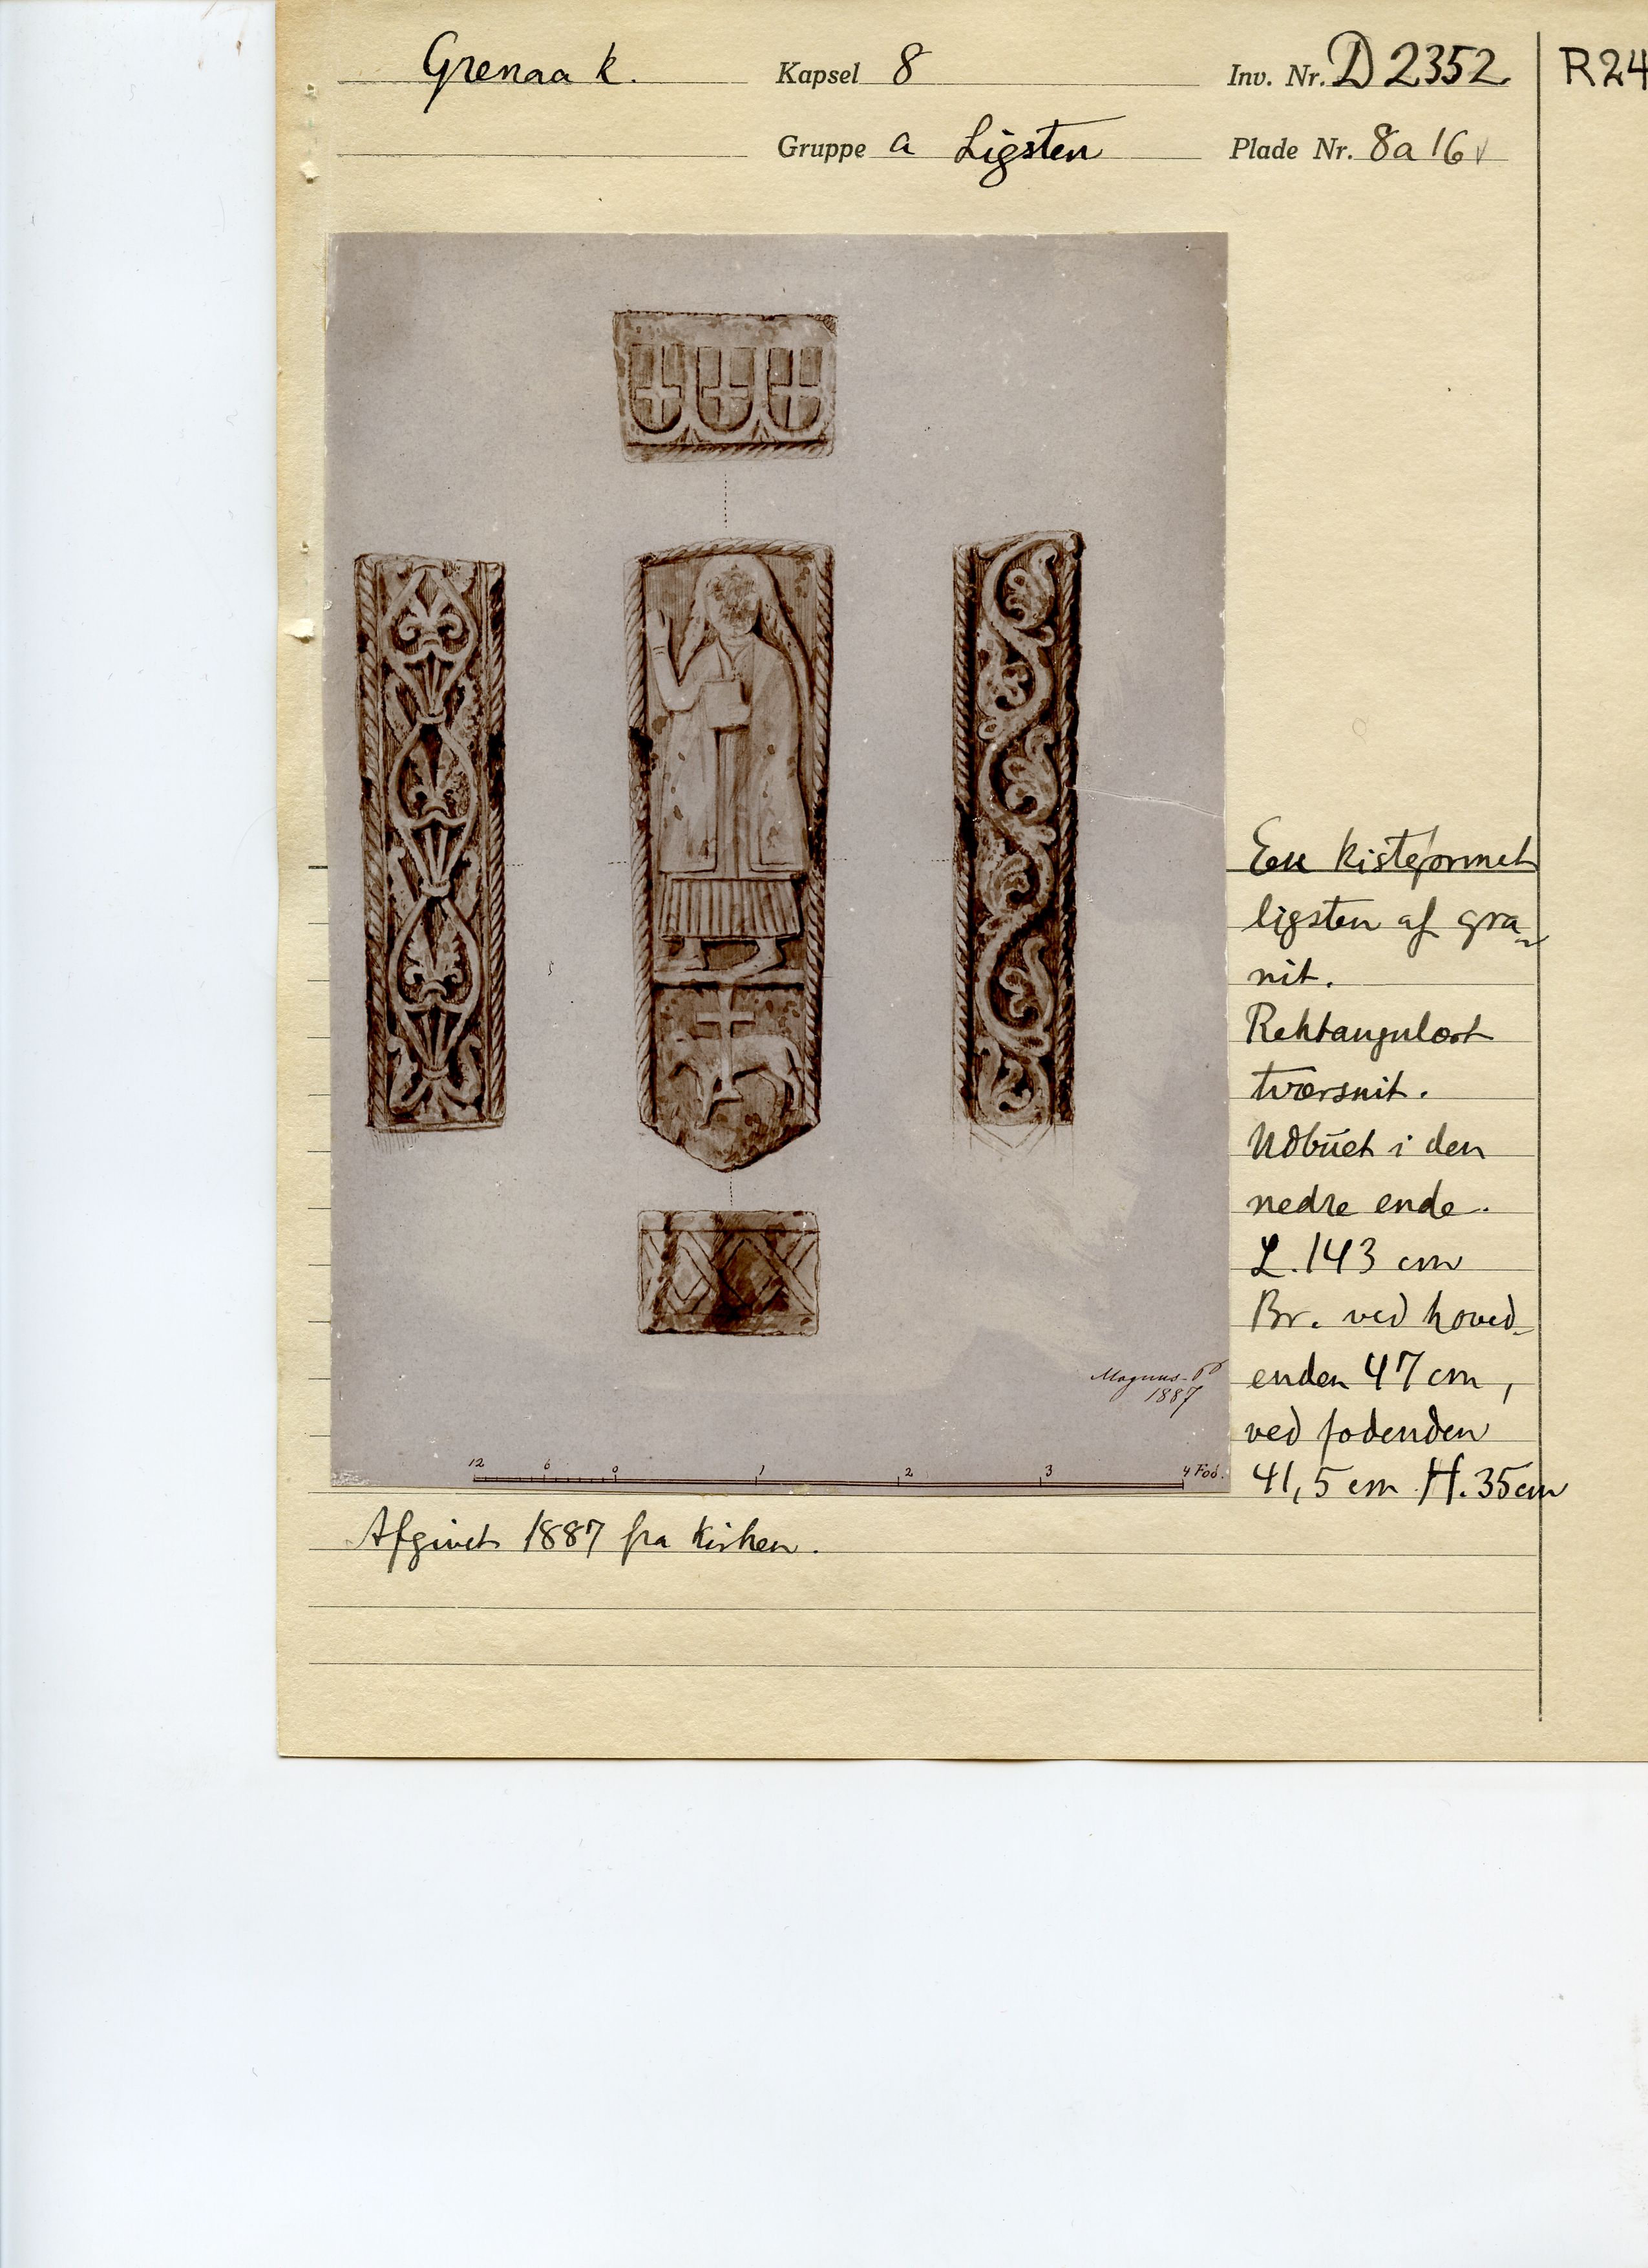 Grenaa k. Kapsel 8 Inv. Nr. D 2352 R24
Gruppe a Ligsten Plade Nr. 8a 16
En kisteformet
ligsten af gra-
nit.
Rektangulært
tværsnit.
Udbuet i den
nedre ende.
L. 143 cm
Br. ved hoved-
enden 47 cm,
ved fodenden
41,5 cm H. 35 cm
Magnus-
1887
12 6 0 1 2 3 4 Fod.
Afgivet 1887 fra kirken.